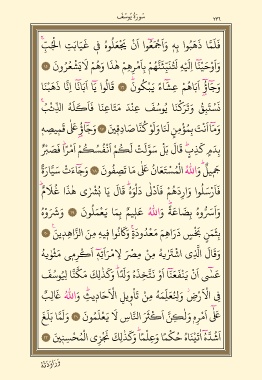 سُورَةُ يُوسُفَ
٢٣٦
فَلَمَّا ذَهَبُوا بِهِ وَاَجْمَعُٓوا اَنْ يَجْعَلُوهُ فٖي غَيَابَتِ الْجُبِّۚ
وَاَوْحَيْنَٓا اِلَيْهِ لَتُنَبِّئَنَّهُمْ بِاَمْرِهِمْ هٰذَا وَهُمْ لَا يَشْعُرُونَ ﴿١٥﴾
وَجَٓاؤُٓ اَبَاهُمْ عِشَٓاءً يَبْكُونَۜ ﴿١٦﴾ قَالُوا يَٓا اَبَانَٓا اِنَّا ذَهَبْنَا
نَسْتَبِقُ وَتَرَكْنَا يُوسُفَ عِنْدَ مَتَاعِنَا فَاَكَلَهُ الذِّئْبُۚ
وَمَٓا اَنْتَ بِمُؤْمِنٍ لَنَا وَلَوْ كُنَّا صَادِقٖينَ ﴿١٧﴾ وَجَٓاؤُ عَلٰى قَمٖيصِهٖ
بِدَمٍ كَذِبٍۜ قَالَ بَلْ سَوَّلَتْ لَكُمْ اَنْفُسُكُمْ اَمْرًاۜ فَصَبْرٌ
جَمٖيلٌۜ وَاللّٰهُ الْمُسْتَعَانُ عَلٰى مَا تَصِفُونَ ﴿١٨﴾ وَجَٓاءَتْ سَيَّارَةٌ
فَاَرْسَلُوا وَارِدَهُمْ فَاَدْلٰى دَلْوَهُۜ قَالَ يَا بُشْرٰى هٰذَا غُلَامٌۜ
وَاَسَرُّوهُ بِضَاعَةًۜ وَاللّٰهُ عَلٖيمٌ بِمَا يَعْمَلُونَ ﴿١٩﴾ وَشَرَوْهُ
بِثَمَنٍ بَخْسٍ دَرَاهِمَ مَعْدُودَةٍۚ وَكَانُوا فٖيهِ مِنَ الزَّاهِدٖينَ۟ ﴿٢٠﴾
وَقَالَ الَّذِي اشْتَرٰيهُ مِنْ مِصْرَ لِامْرَاَتِهٖٓ اَكْرِمٖي مَثْوٰيهُ
عَسٰٓى اَنْ يَنْفَعَنَٓا اَوْ نَتَّخِذَهُ وَلَدًاۜ وَكَذٰلِكَ مَكَّنَّا لِيُوسُفَ
فِي الْاَرْضِۘ وَلِنُعَلِّمَهُ مِنْ تَأْوٖيلِ الْاَحَادٖيثِۜ وَاللّٰهُ غَالِبٌ
عَلٰٓى اَمْرِهٖ وَلٰكِنَّ اَكْثَرَ النَّاسِ لَا يَعْلَمُونَ ﴿٢١﴾ وَلَمَّا بَلَغَ
اَشُدَّهُٓ اٰتَيْنَاهُ حُكْمًا وَعِلْمًاۜ وَكَذٰلِكَ نَجْزِي الْمُحْسِنٖينَ ﴿٢٢﴾
وَرَاوَدَتْهُ